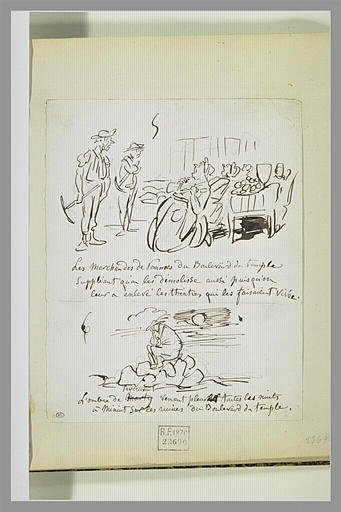 Les Marchandes de Pommes du Boulevard du temple
Suppliant qu'on les demolisse aussi puisqu'on
leur a enlevé les théatres qui les faisaient vivre.
L'ombre de venant pleurer toutes les nuits
à Minuit sur les ruines du Boulevard du temple.
R.F. 1870
23690